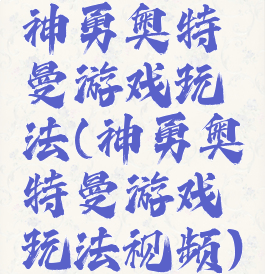 神勇奥特
曼游戏玩
法(神勇奥
特曼游戏
玩法视频)